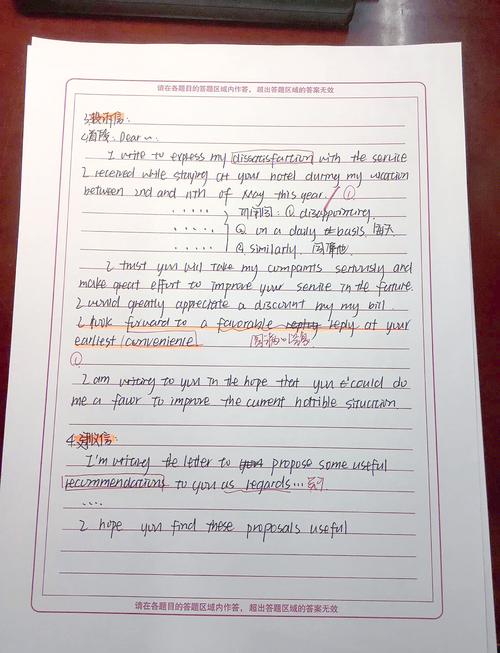 请在各题目的答题区域内作答，超出答题区域的答案无效
3.投诉信：
Dear ~.
I write to express my dissatisfaction with the service
I received while staying at your hotel during my vacation
between 2nd and 11th of May this year. ①
...... ① disappointing.
...... ② on a daily basis. 每天
...... ③ similarly.
I trust you will take my compaints seriously and
make great effort to improve your service in the future.
I would greatly appreciate a discount my my bill.
I look forward to a favorable reply at your
earliest convenience.
①
I am writing to you in the hope that you could do
me a favor to improve the current horrible situation.
4.建议信：
I'm writing the letter to propose some useful
recommendations to you as regards...
....
I hope you find these proposals useful
请在各题目的答题区域内作答，超出答题区域的答案无效